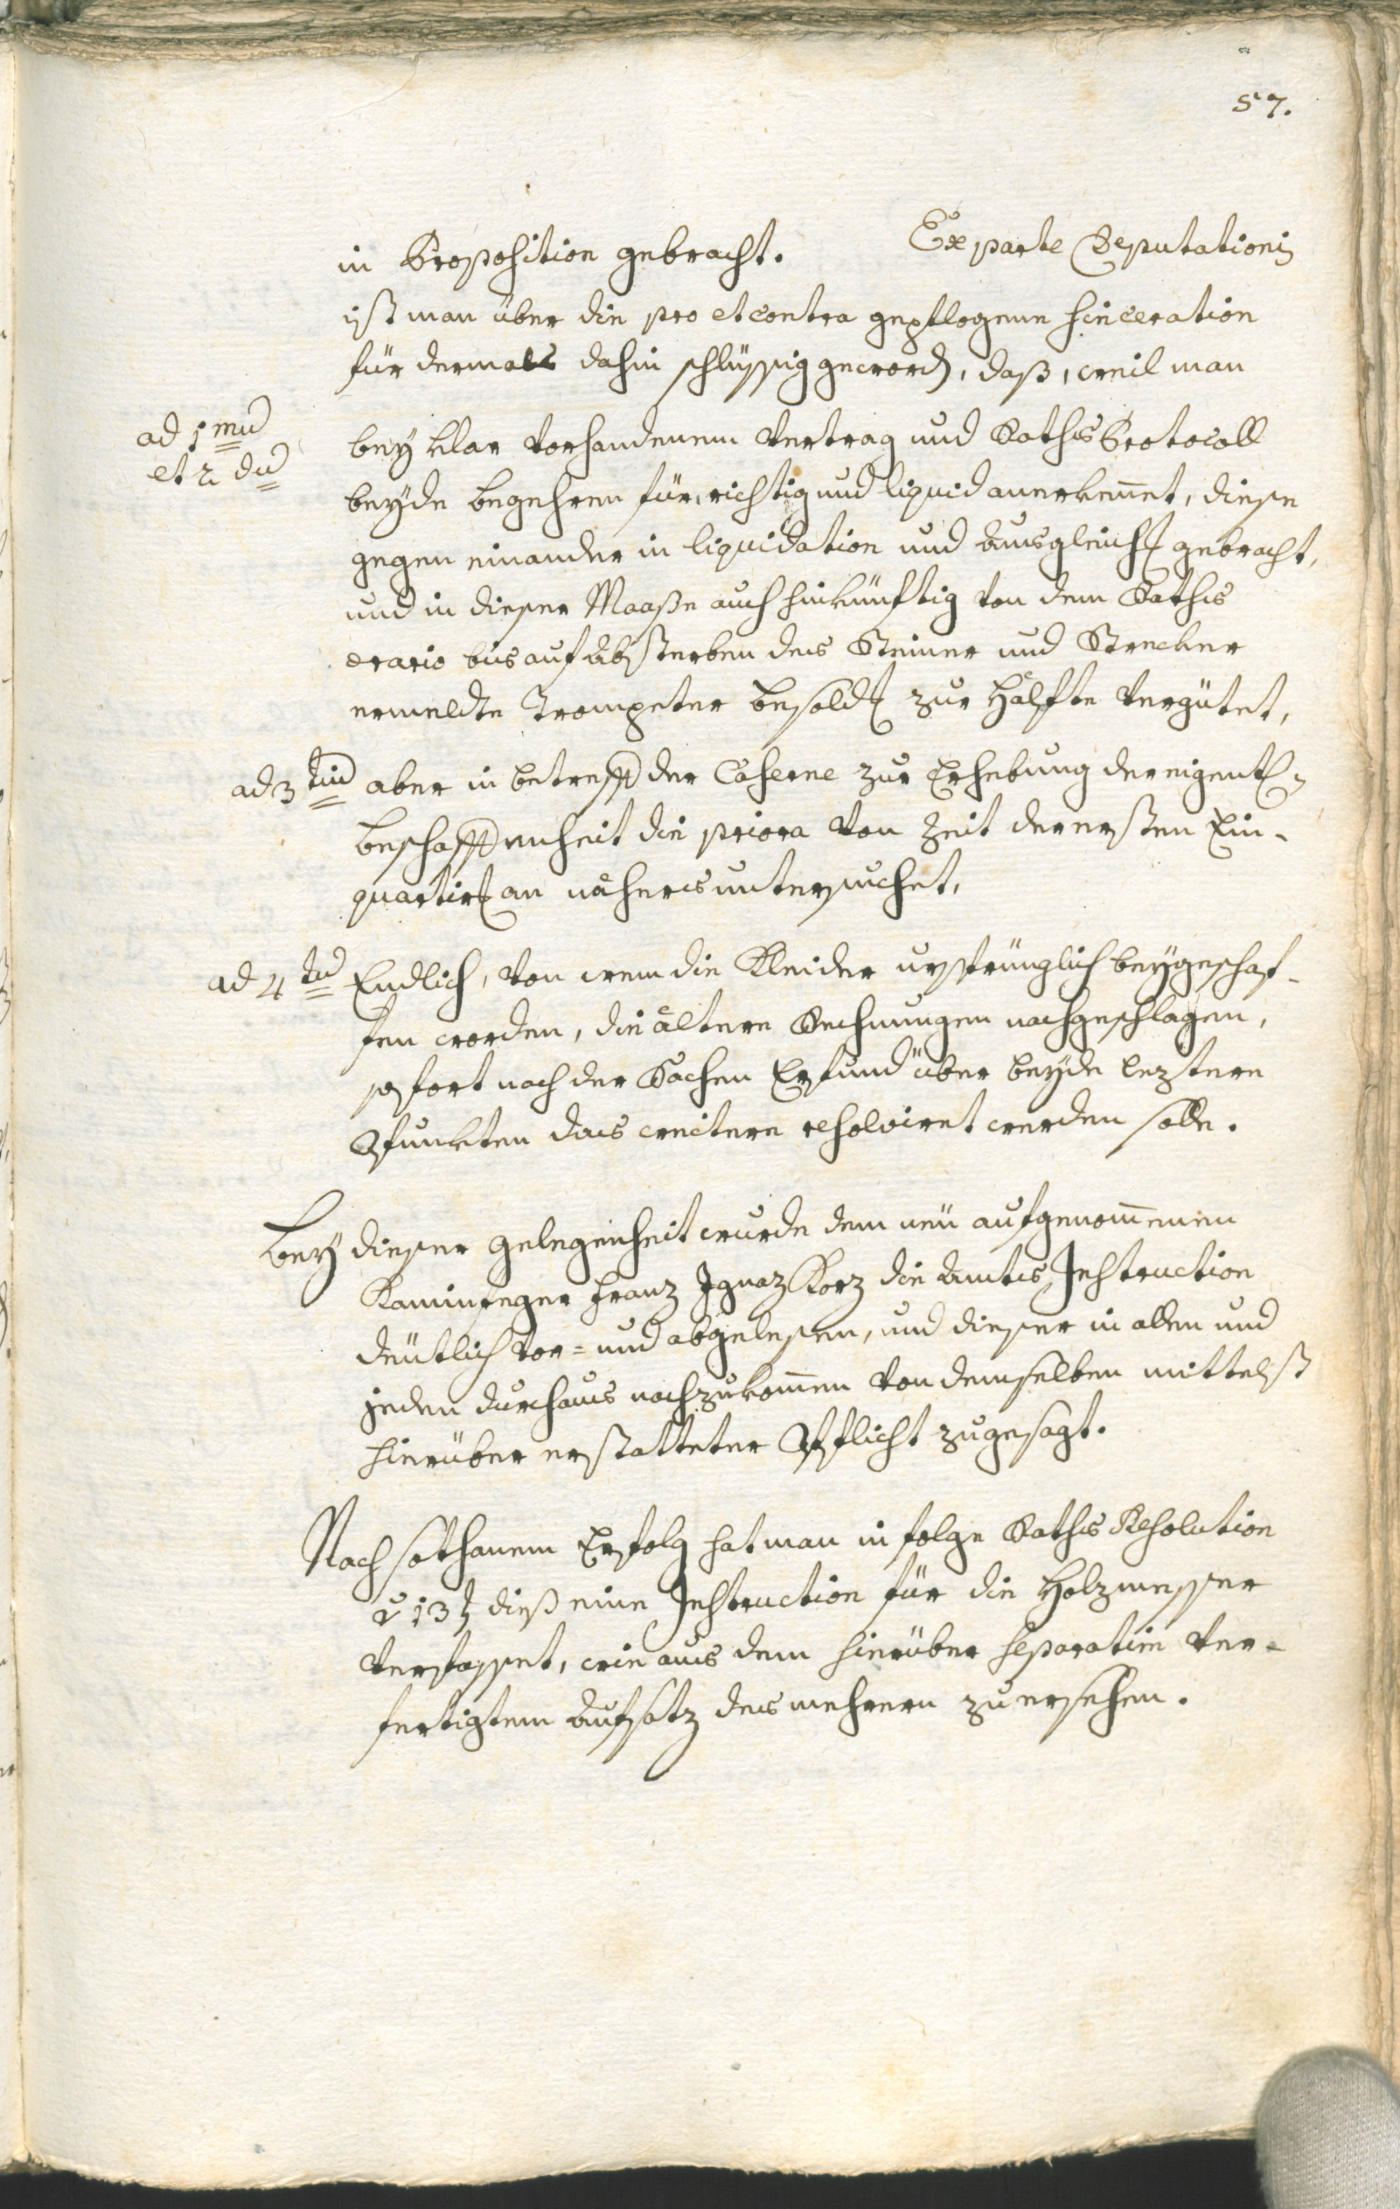 57.
in Proposition gebracht. Ex parte Deputationis
ist man über die pro et contra gepflogene sinceration
für dermals dahin schlüssig geword, daß, weil man
ad 1mū
et 2dū
bey klar vorhandenem Vertrag und Raths Protocoll
beyde begehren für richtig und liquid anerkennet, diese
gegen einander in liquidation und Ausgleich gebracht,
und in dieser Maaße auch hinkünftig von dem Raths
erario bis auf Absterben des Steiner und Strecker
ermeldte Trompeter besold zur Hälfte vergütet,
ad 3tiū aber in betreff der Caserne zur Erhebung der eigentl-
beschaffenheit die priora von Zeit der ersten Ein-
quartir an näheres untersuchet,
ad 4tū Endlich, von wem die Kleider ursprünglich beygeschaf-
fen worden, die ältere Rechnungen nachgeschlagen,
sofort nach der Sachen Erfund über beyde leztere
Pfunkten das weitere resolviret werden solle.
Bey dieser gelegenheit wurde dem neü aufgenommenen
Kaminfeger Franz Ignaz Korz die Amts Instruction
deütlich vor- und abgelesen, und dieser in allen und
jeden durchaus nachzukommen von demselben mittelst
hierüber erstatteter Pfflicht zugesagt.
Nach sothanem Erfolg hat man in folge Raths Resolution
v 13t dieß eine Instruction für die Holzmesser
verfasset, wie aus dem hierüber separatim ver-
fertigtem Aufsatz des mehrern zu ersehen.